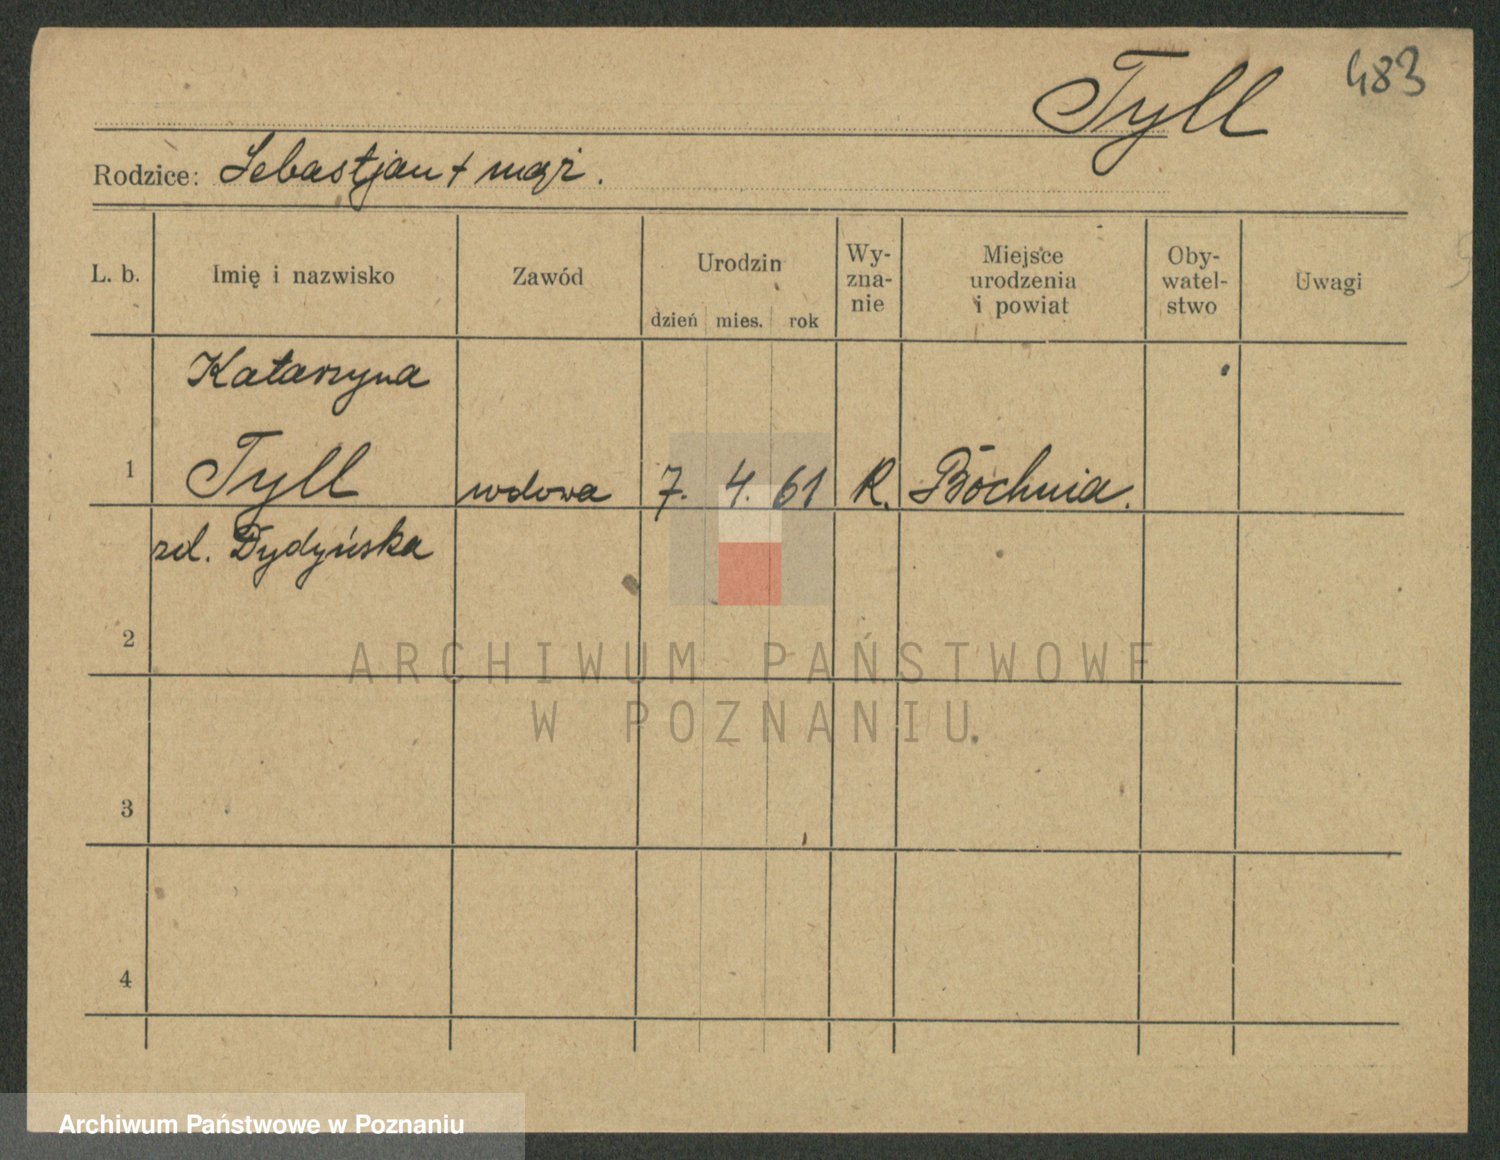 Tyll 483
Rodzice: Sebastjan + mąż.
L. b. Imię i nazwisko Zawód Urodzin Wy-zna-nie Miejsce urodzenia i powiat Oby-watel-stwo Uwagi
dzień mies. rok
Katarzyna
1 Tyll wdowa 7. 4. 61 R. Bochnia.
zd. Dydyńska
2
ARCHIWUM PAŃSTWOWE
W POZNANIU
3
4
Archiwum Państwowe w Poznaniu